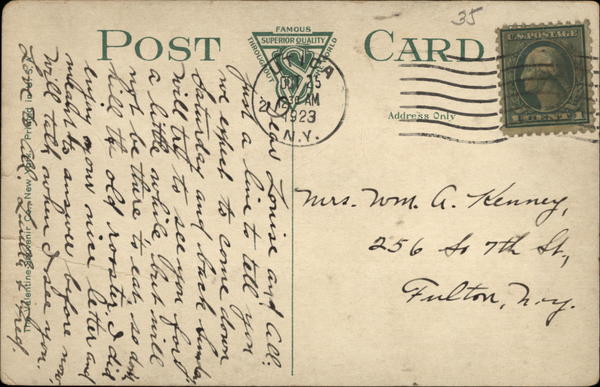 POST CARD
FAMOUS
THROUGHOUT
SUPERIOR QUALITY
WORLD
35
U.S. POSTAGE
1 CENT 1
UTICA
5
AM
1923
N.Y.
Address Only
Mrs. Wm. A. Kenney,
256 So 7th St,
Fulton, N.Y.
Dear Louise and All:
Just a line to tell you
we expect to come down
Saturday and back Sunday.
Will try to see you for
a little while but will
not be there to eat so don't
kill the old rooster. I did
enjoy your nice letter and
meant to answer before now.
Will talk when I see you.
Love to all. and Fred.
The Valentine-Souvenir Co., New York. Printed in U.S.A.